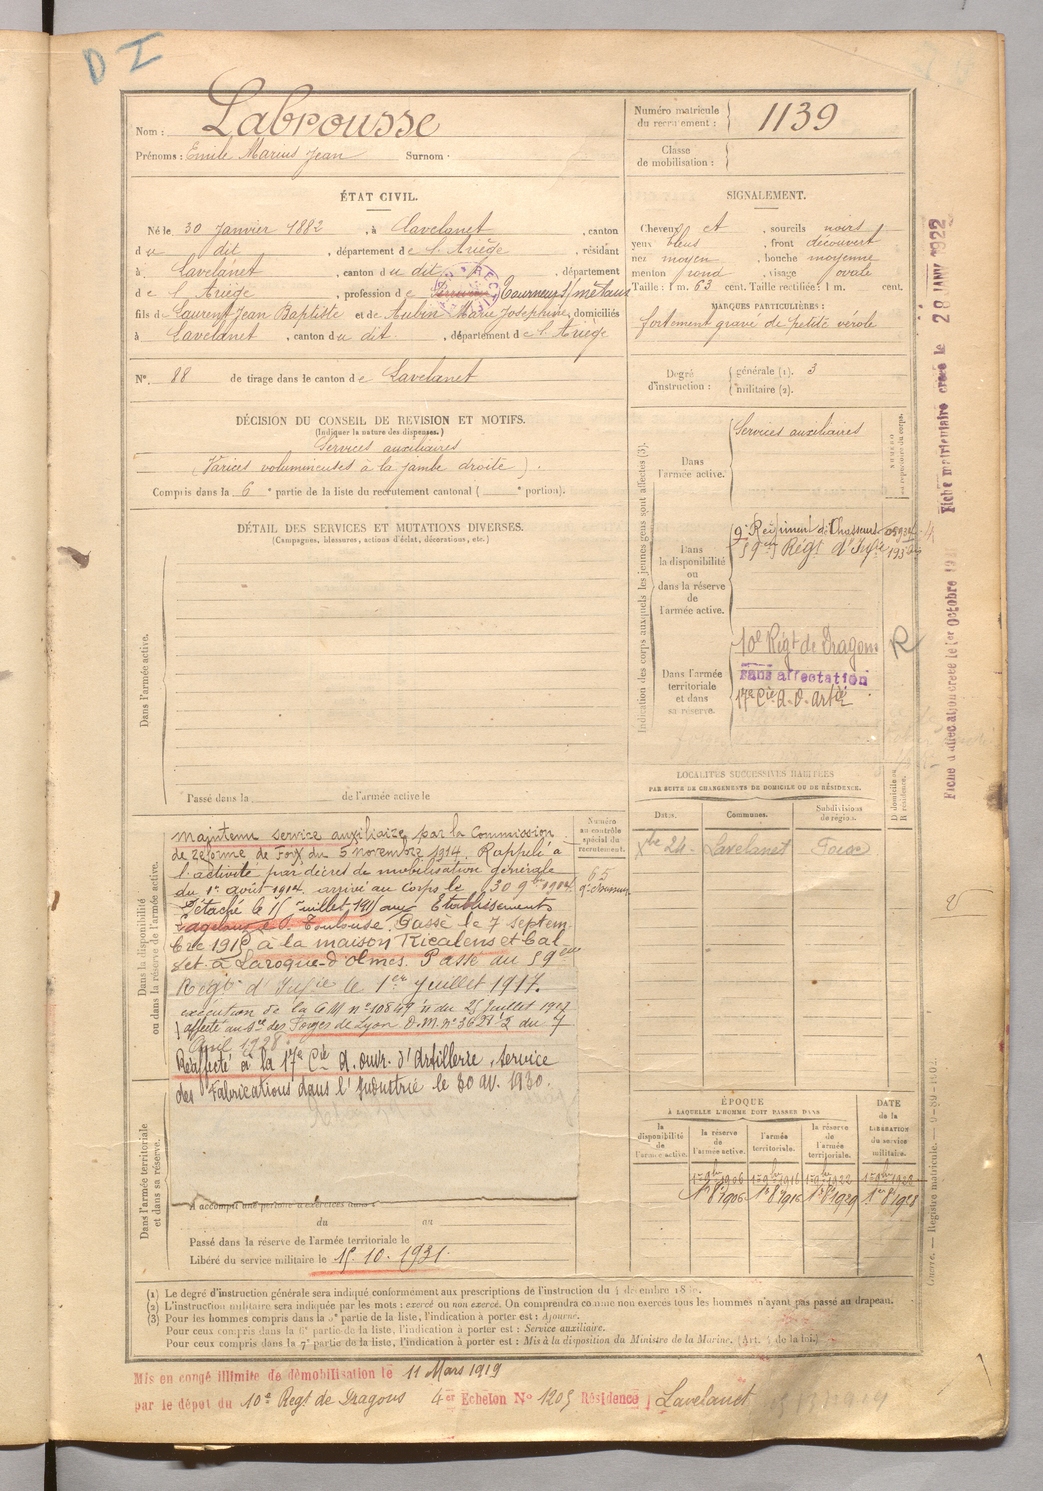 D I
Nom : Labrousse
Prénoms : Emile Marius Jean Surnom :
Numéro matricule du recrutement : 1139
Classe de mobilisation :
ÉTAT CIVIL.
Né le 30 Janvier 1882, à Lavelanet, canton
du dit, département de l'Ariège, résidant
à Lavelanet, canton du dit, département
de l'Ariège, profession de Tourneur s/métaux
fils de Laurent Jean Baptiste et de Aubin Marie Josephine, domiciliés
à Lavelanet, canton du dit, département de l'Ariège
N° 88 de tirage dans le canton de Lavelanet
SIGNALEMENT.
Cheveux et, sourcils noirs
yeux bleus, front découvert
nez moyen, bouche moyenne
menton rond, visage ovale
Taille : 1 m. 63 cent. Taille rectifiée : 1 m. cent.
MARQUES PARTICULIÈRES :
fortement gravé de petite vérole
Degré d'instruction : générale (1). 3
militaire (2).
DÉCISION DU CONSEIL DE REVISION ET MOTIFS.
(Indiquer la nature des dispenses.)
Services auxiliaires
(Varices volumineuses à la jambe droite).
Compris dans la 6e partie de la liste du recrutement cantonal ( e portion).
DÉTAIL DES SERVICES ET MUTATIONS DIVERSES.
(Campagnes, blessures, actions d'éclat, décorations, etc.)
Dans l'armée active.
Passé dans la de l'armée active le
Indication des corps auxquels les jeunes gens sont affectés (3).
NUMÉRO au répertoire du corps.
Dans l'armée active.
Services auxiliaires
Dans la disponibilité ou dans la réserve de l'armée active.
9e Régiment de Chasseurs
59ème Régt d'Infie
Dans l'armée territoriale et dans sa réserve.
10e Régt de Dragons
R
sans affectation
17e Cie d. O. artie
Fiche matriculaire créée le 28 JANV 1922
Fiche d'affectation créée le 1er Octobre
LOCALITÉS SUCCESSIVES HABITÉES
PAR SUITE DE CHANGEMENTS DE DOMICILE OU DE RÉSIDENCE.
Dates. Communes. Subdivisions de région. D domicile ou R résidence.
Xbre 24 Lavelanet Foix
Dans la disponibilité ou dans la réserve de l'armée active.
Numéro au contrôle spécial du recrutement.
Maintenu service auxiliaire par la Commission
de Réforme de Foix du 5 novembre 1914. Rappelé à
l'activité par décret de mobilisation générale
du 1er août 1914. arrivé au Corps le 30 9bre 1914.
Détaché le 15 juillet 1915 aux Etablissements
Toulouse. Passé le 7 septem-
bre 1916 à la maison Ricalens et Cal-
vet à Laroque-d'Olmes. Passé au 59ème
Régt d'Infie le 1er Juillet 1917.
exécution de la C.M. du 25 Juillet 1917
affecté au des Forges de Lyon D.M. n° 3628 1/2 du 7
Avril 1928
Réaffecté à la 17e Cie d. ouvr. d'Artillerie, service
des Fabrications dans l'Industrie le 30 av. 1930.
Dans l'armée territoriale et dans sa réserve.
A accompli une période d'exercices dans :
du au
Passé dans la réserve de l'armée territoriale le
Libéré du service militaire le 15.10.1931.
ÉPOQUE
À LAQUELLE L'HOMME DOIT PASSER DANS
la disponibilité de l'armée active. la réserve de l'armée active. l'armée territoriale. la réserve de l'armée territoriale. DATE de la LIBÉRATION du service militaire.
1er 9bre 1906 1er 9bre 1916 1er 9bre 1922 1er 9bre 1928
1er 8bre 1906 1er 8bre 1916 1er 8bre 1929 1er 8bre 1928
(1) Le degré d'instruction générale sera indiqué conformément aux prescriptions de l'instruction du 4 décembre 18
(2) L'instruction militaire sera indiquée par les mots : exercé ou non exercé. On comprendra comme non exercés tous les hommes n'ayant pas passé au drapeau.
(3) Pour les hommes compris dans la 5e partie de la liste, l'indication à porter est : Ajourné.
Pour ceux compris dans la 6e partie de la liste, l'indication à porter est : Service auxiliaire.
Pour ceux compris dans la 7e partie de la liste, l'indication à porter est : Mis à la disposition du Ministre de la Marine. (Art. 4 de la loi.)
Guerre. — Registre matricule.
Mis en congé illimité de démobilisation le 11 Mars 1919
par le dépôt du 10e Régt de Dragons 4er Echelon N° 1205 Résidence Lavelanet